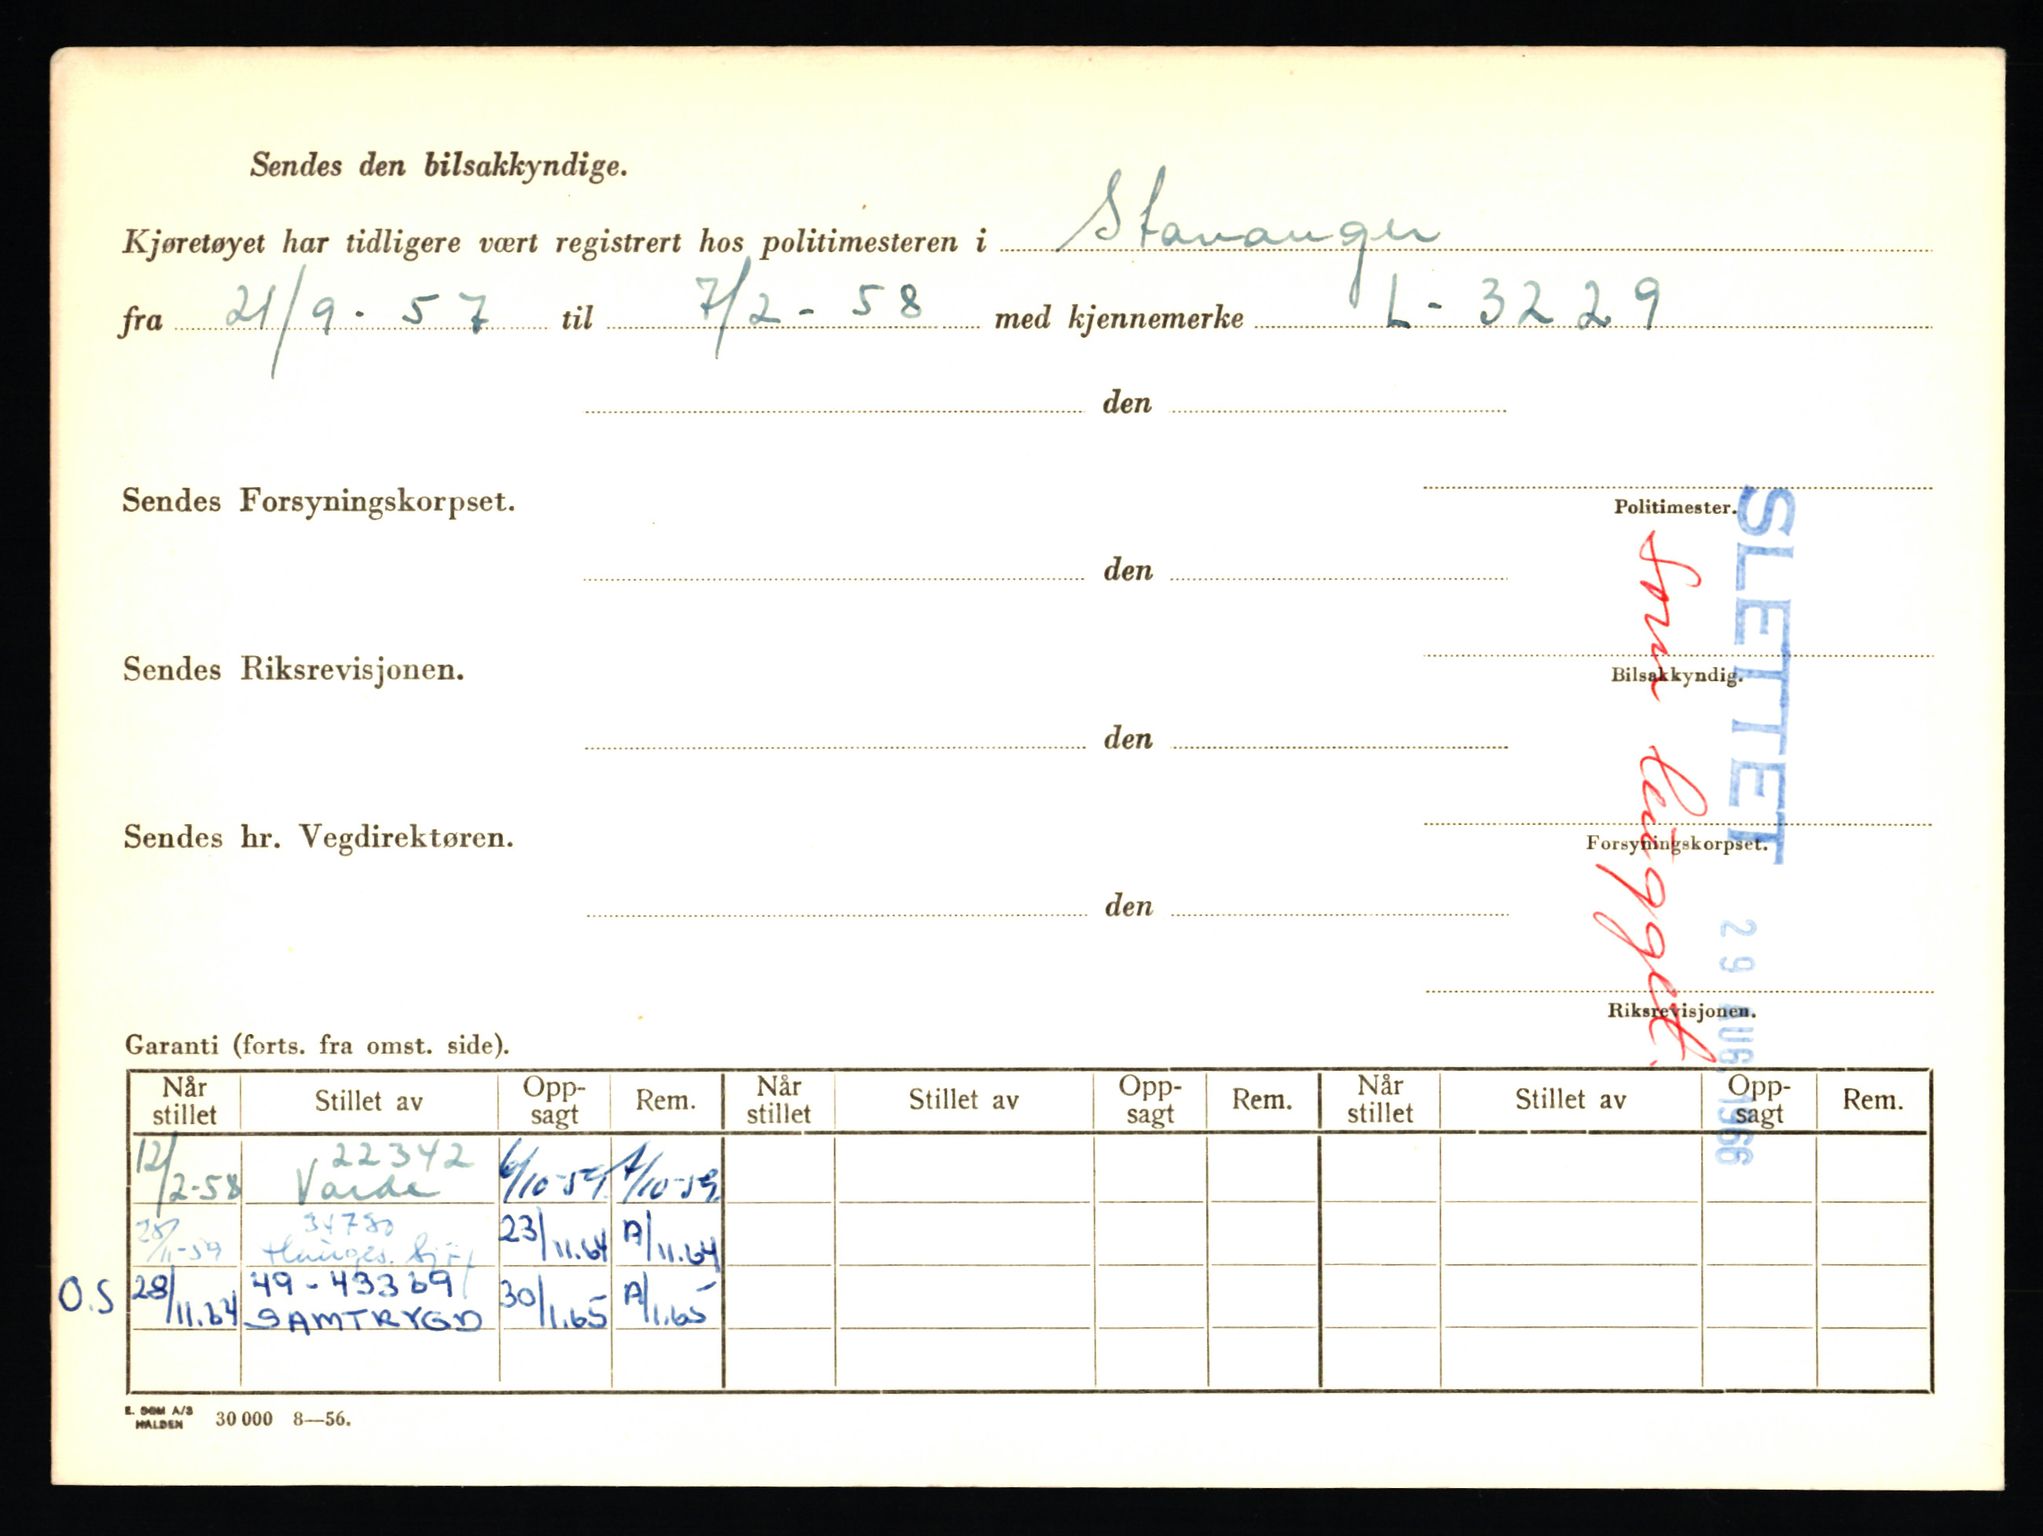 Sendes den bilsakkyndige.
Kjøretøyet har tidligere vært registrert hos politimesteren i Stavanger
fra 21/9 - 57 til 7/2 - 58 med kjennemerke L - 3229
den
Politimester.
Sendes Forsyningskorpset.
den
Bilsakkyndig.
Sendes Riksrevisjonen.
den
Forsyningskorpset.
Sendes hr. Vegdirektøren.
den
Riksrevisjonen.
SLETTET 29 AUG 1966
Som hugget.
Garanti (forts. fra omst. side).
Når stillet Stillet av Opp-sagt Rem. Når stillet Stillet av Opp-sagt Rem. Når stillet Stillet av Opp-sagt Rem.
12/2-58 22342 Varde 6/10-59. A/10-59.
28/11-59 34780 23/11.64 A/11.64
O.S 28/11.64 49-43369 SAMTRYGD 30/1.65 A/1.65
E. SEM A/S
HALDEN 30 000 8—56.